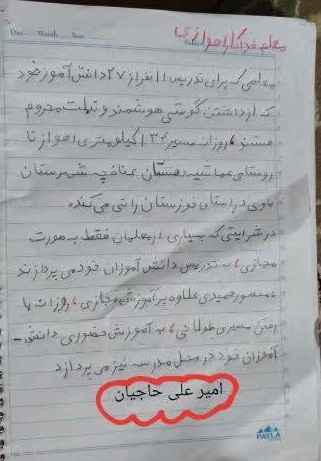 معلم فداکار اهوازی
معلمی که برای تدریس ۱۱ نفر از ۲۷ دانش آموز خود
که از داشتن گوشی هوشمند و تبلت محروم
هستند، روزانه مسیر ۱۳۴ کیلومتری اهواز تا
روستای عماشیه دهستان عنافچه شهرستان
باوی در استان خوزستان را طی می کند.
در شرایطی که بسیاری از معلمان فقط به صورت
مجازی، به تدریس دانش آموزان خود می پردازند
، منصور حمیدی علاوه بر آموزش مجازی، روزانه با
رفتن مسیری طولانی، به آموزش حضوری دانش -
آموزان خود در محل مدرسه نیز می پردازد
امیر علی حاجیان
PAYLA